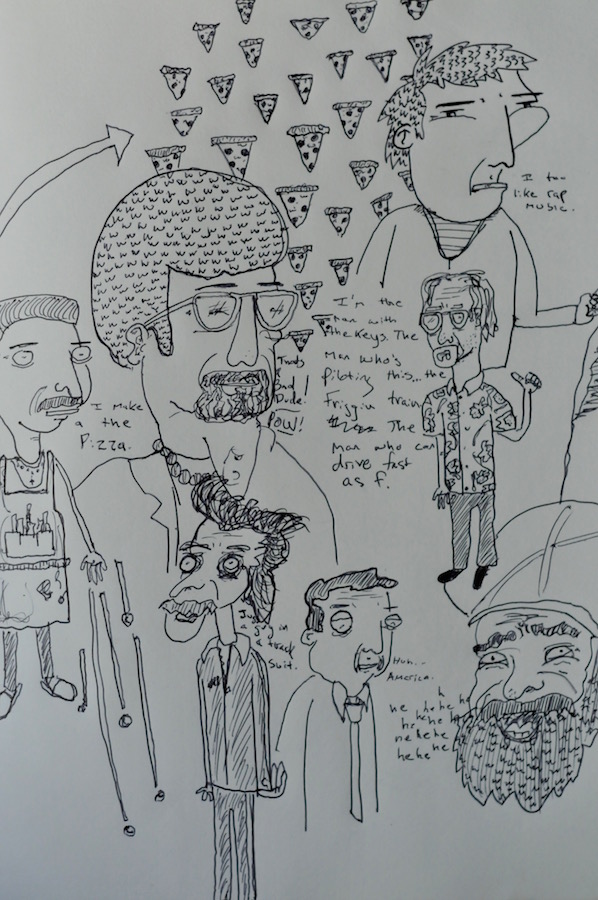 I too
like rap
music.
I'm the
man with
the keys. The
Man who's
Piloting this... the
Friggin train
The
man who can
drive fast
as f.
and
Dude!
POW!
I make
a the
Pizza.
Just
a guy in
a track
suit.
Huh...
America.
h
he he he he
he he he
he he he
he he he